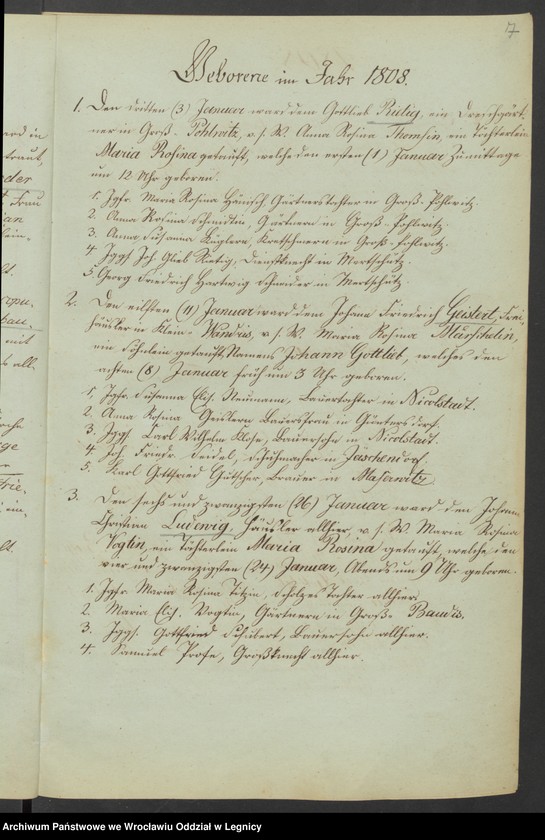 17
Geborene im Jahr 1808.
1. Den dritten (3) Januar ward dem Gottlieb Rietig, ein Dreschgärt-
ner in Groß-Pohlwitz, v. s. W. Anna Rosina, ein Töchterlein
Maria Rosina getauft, welche den ersten (1) Januar zu mittage
um 12 Uhr geboren.
1. Jgfr. Maria Rosina Hänisch Gärtnerstochter in Groß-Pohlwitz.
2. Anna Rosina Schmidtin, Gärtnerin in Groß-Pohlwitz.
3. Anna Susanna, Kretschmern in Groß-Pohlwitz.
4. Jggs. Joh. Glieb Rietig, Dienstknecht in Mertschütz.
5. Georg Friedrich Hartwig Schneider in Mertschütz.
2. Den eilften (11) Januar ward dem Johann Friedrich Geislert, Frei-
häusler in Klein-Wandris, v. s. W. Maria Rosina,
ein Söhnlein getauft, Namens Johann Gottlieb, welches den
achten (8) Januar früh um 3 Uhr geboren.
1. Jgfr. Susanna Elis. Neumann, Bauertochter in Nicolstadt.
2. Anna Rosina Geislern Bauersfrau in Günthersdorf.
3. Jggs. Carl Wilhelm Klose, Bauersohn in Nicolstadt.
4. Joh. Friedr. Seidel, Schuhmacher in Jaschkendorf.
5. Karl Gottfried Gütscher, Brauer in Maserwitz
3. Den sechs und zwanzigsten (26) Januar ward dem Johann
Christian Ludewig, Häusler allhier, v. s. W. Maria Rosina
Vogtin, ein Töchterlein Maria Rosina getauft, welche den
vier und zwanzigsten (24) Januar, Abends um 9 Uhr geboren.
1. Jgfr. Maria Rosina Titzin, Scholzes Tochter allhier.
2. Maria Elis. Vogtin, Gärtnerin in Groß-Baudis.
3. Jggs. Gottfried Schubert, Bauersohn allhier.
4. Samuel Profe, Großknecht allhier.
Archiwum Państwowe we Wrocławiu Oddział w Legnicy